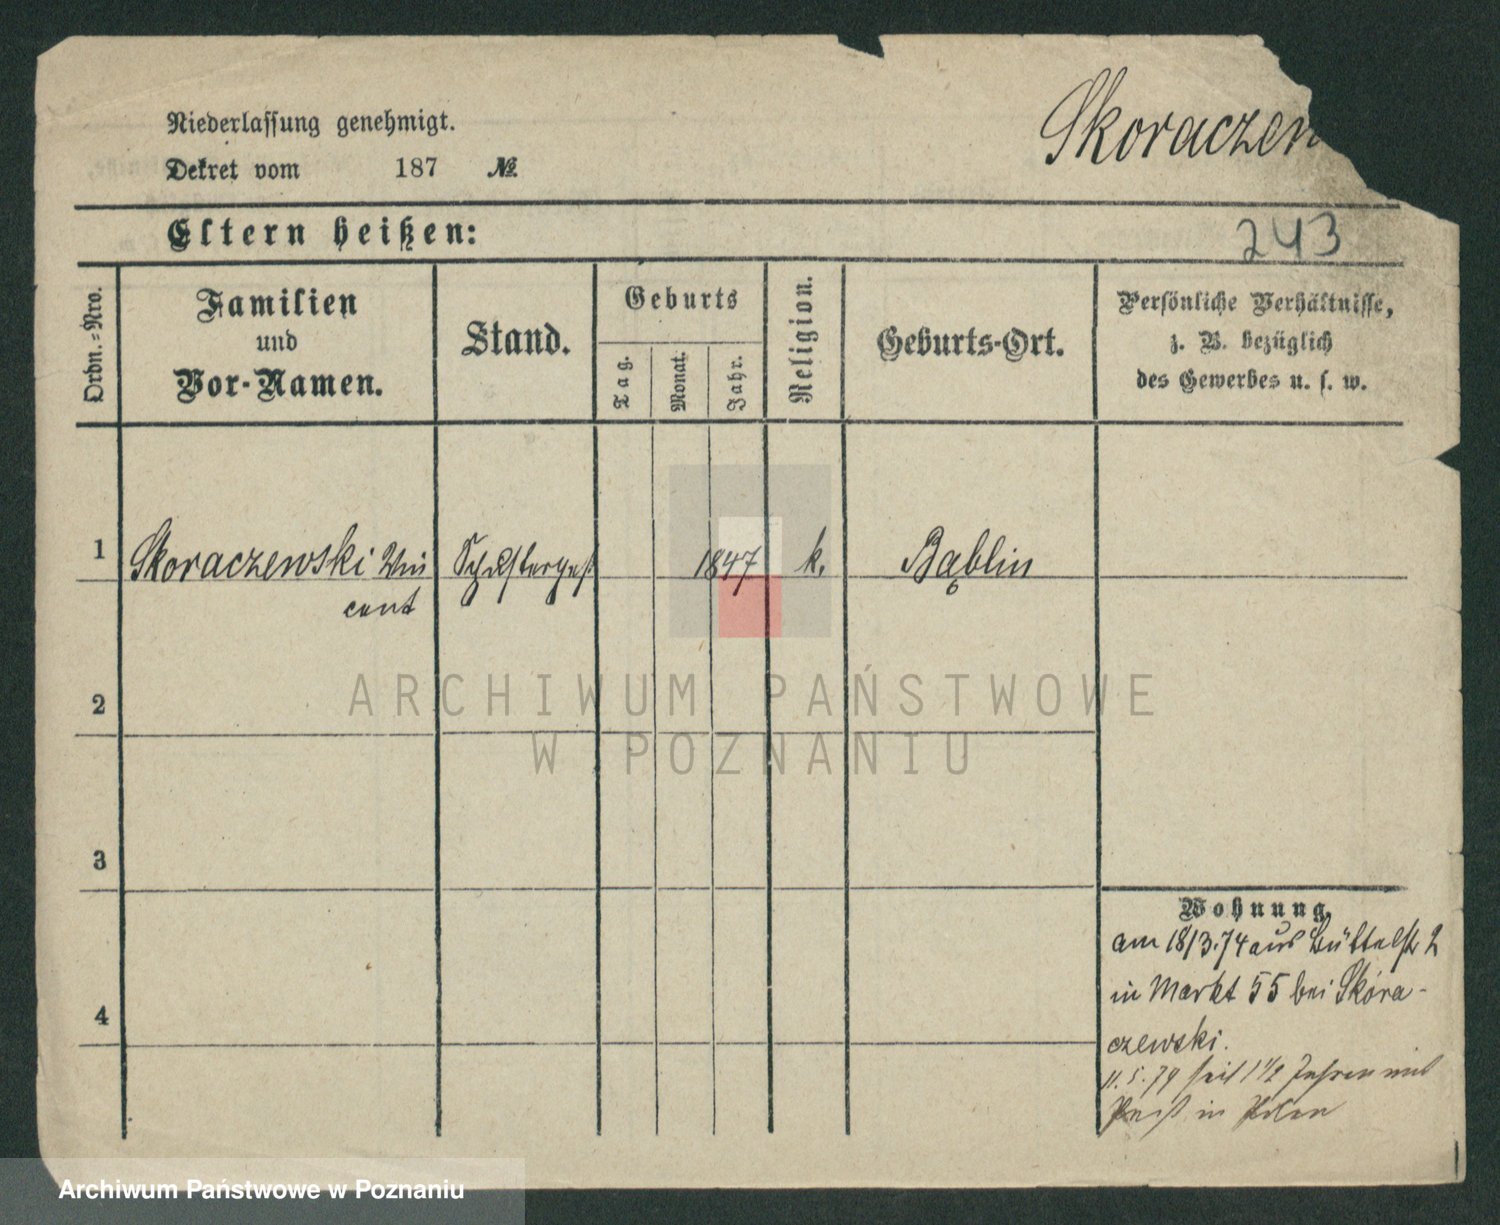 Skoraczew
Niederlassung genehmigt.
Dekret vom 187 №
Eltern heißen:
243
Ordn.-Nro.
Familien
und
Vor-Namen.
Stand.
Geburts
Tag.
Monat.
Jahr.
Religion.
Geburts-Ort.
Persönliche Verhältnisse,
z. B. bezüglich
des Gewerbes u. s. w.
1 Skoraczewski Vin 1847 k. Bąblin
cent
2
3
4
Wohnung.
am 18/3.74 aus Büttelstr 2
in Markt 55 bei Skóra-
czewski.
11.5.79 seit 1 1/2 Jahren mit
in Polen
ARCHIWUM PAŃSTWOWE
W POZNANIU
Archiwum Państwowe w Poznaniu